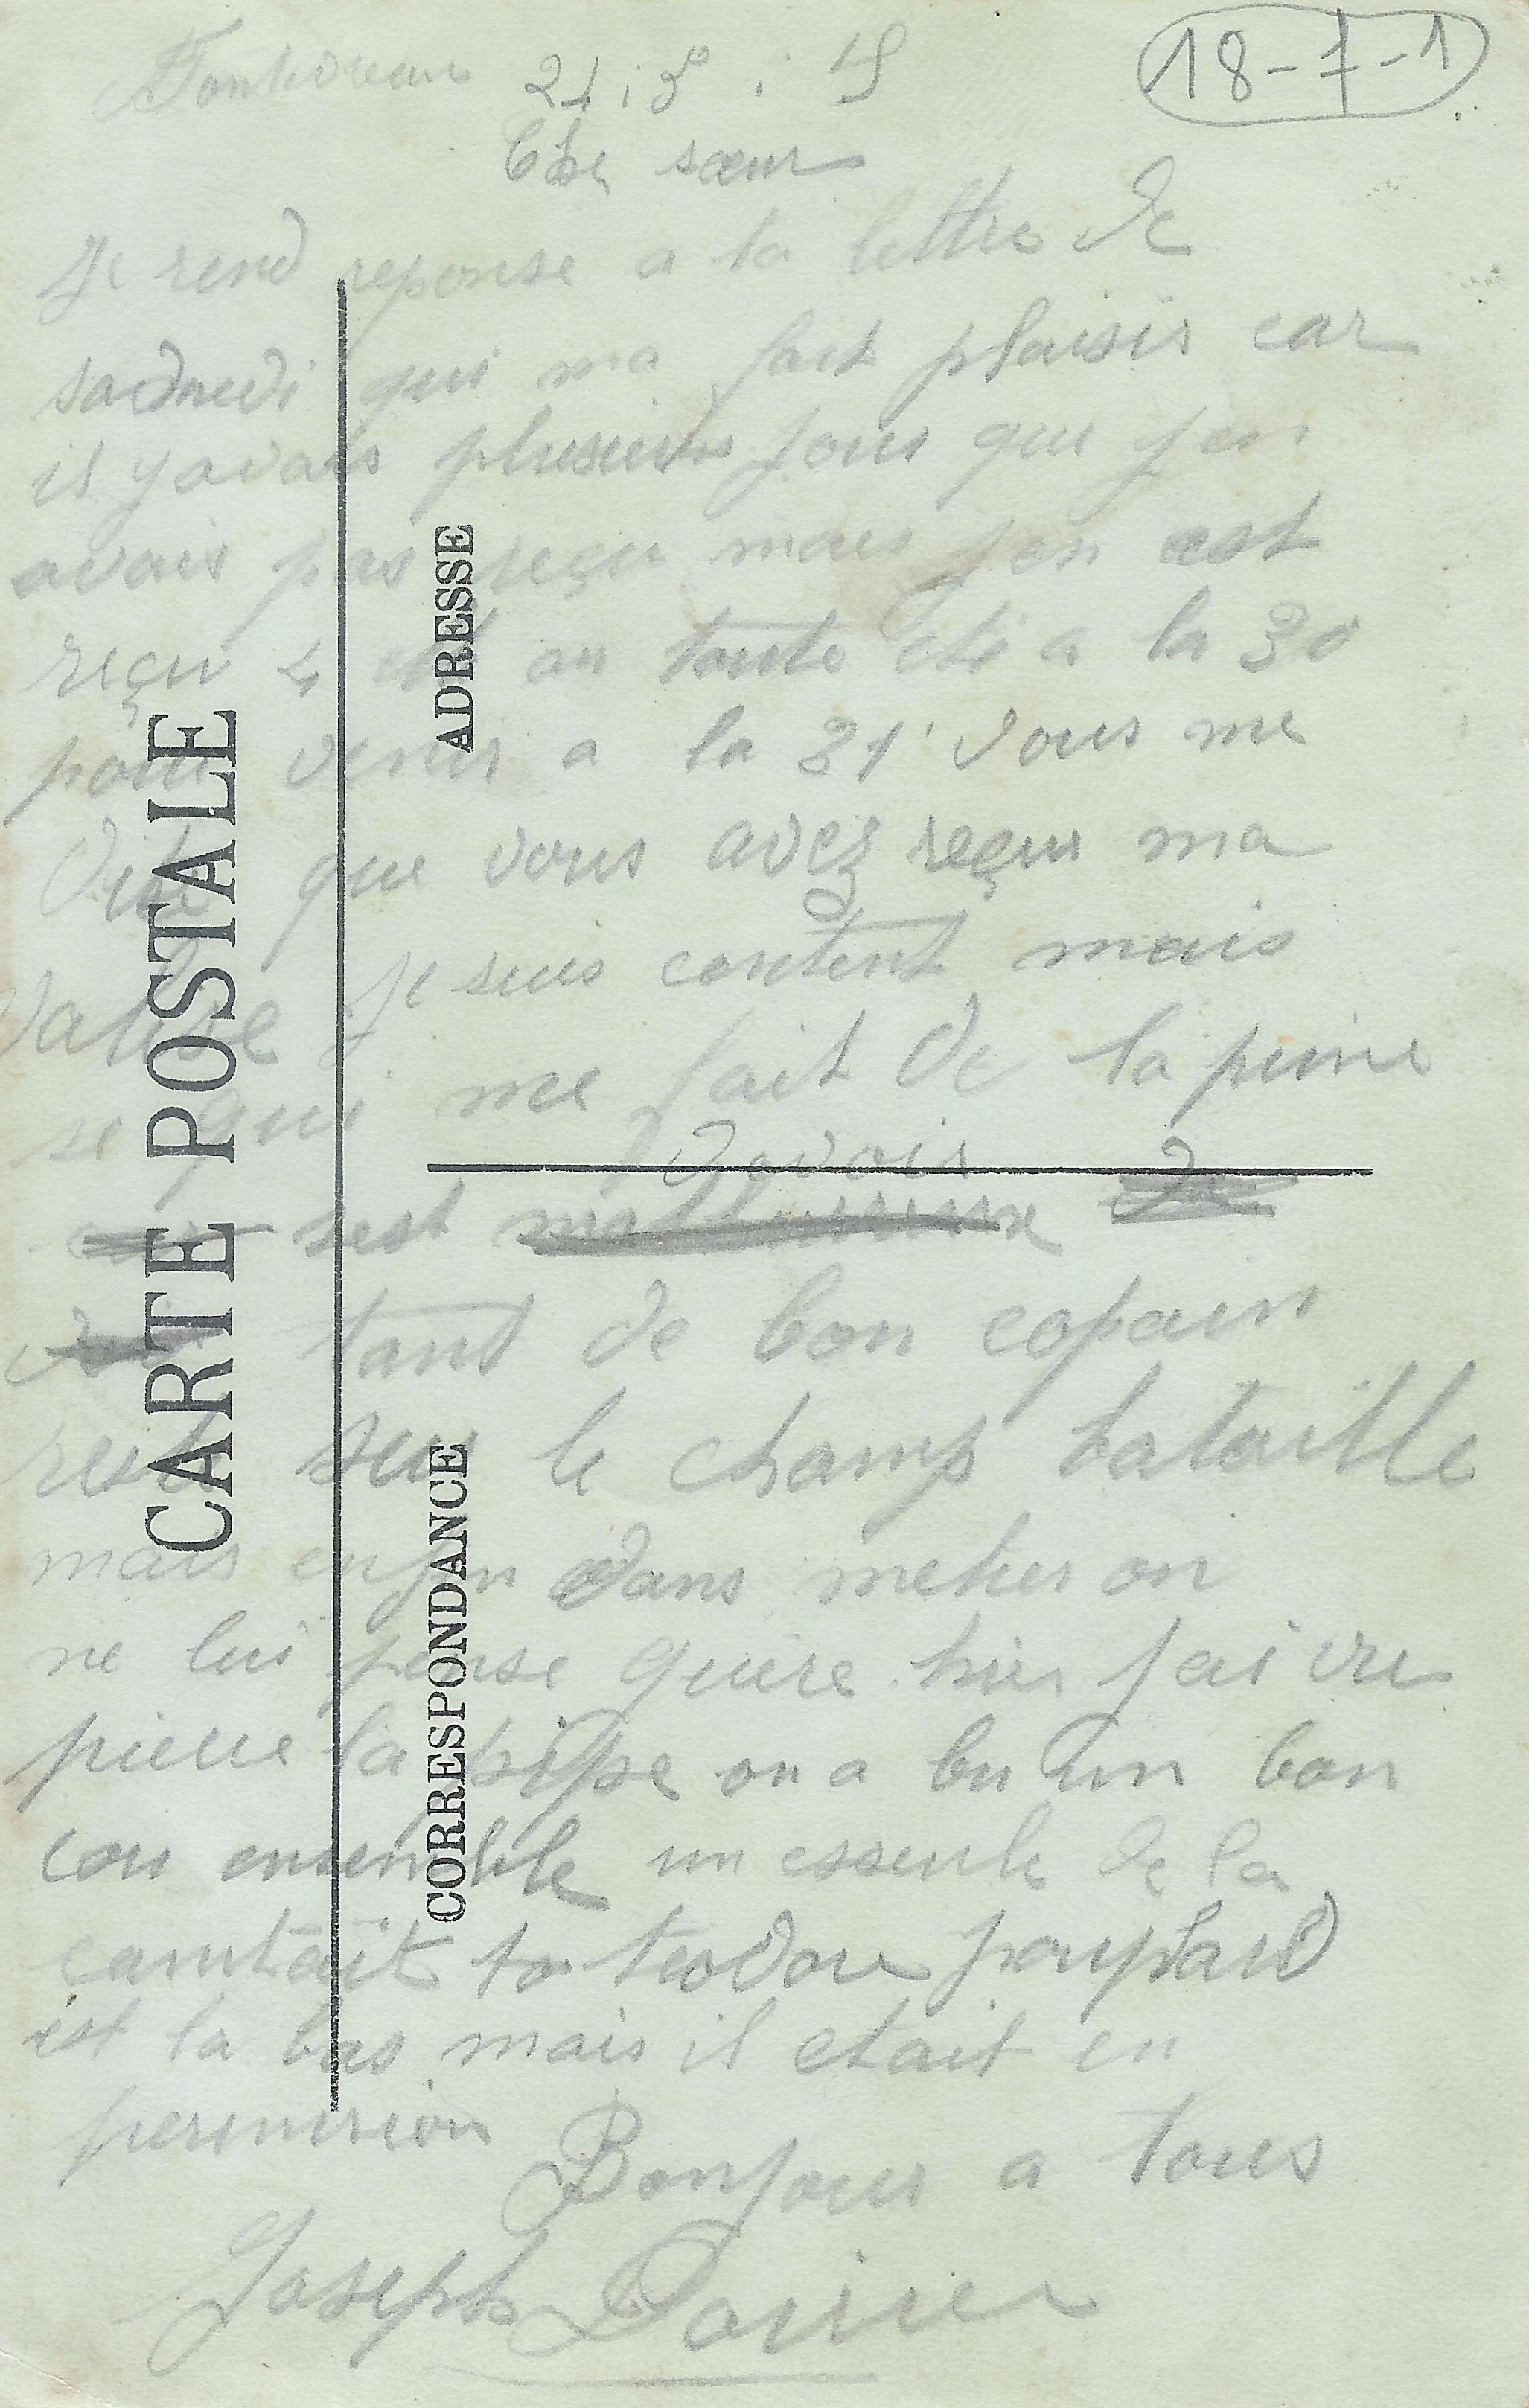 18-7-1
21 : 5 : 15
Che sœur
Je rend reponse a ta lettre de
samedi qui ma fait plaisir car
il y avais plusieurs jour que j en
avais pas reçu mais j en est
reçu 4 on toute été a la 30
pour venir a la 31 vous me
dite que vous avez reçu ma
valise je suis content mais
se qui me fait de la peine
Davoir
sest malheureux de
tant de bon copain
reste sur le champ bataille
mais enfin dans metier on
ne lui pense guère hier j ai vu
pierre la pipe on a bu un bon
cou ensemble un de la
teodore poupard
est la bas mais il etait en
permision Bonjour a tous
Joseph Poirier
CARTE POSTALE
ADRESSE
CORRESPONDANCE